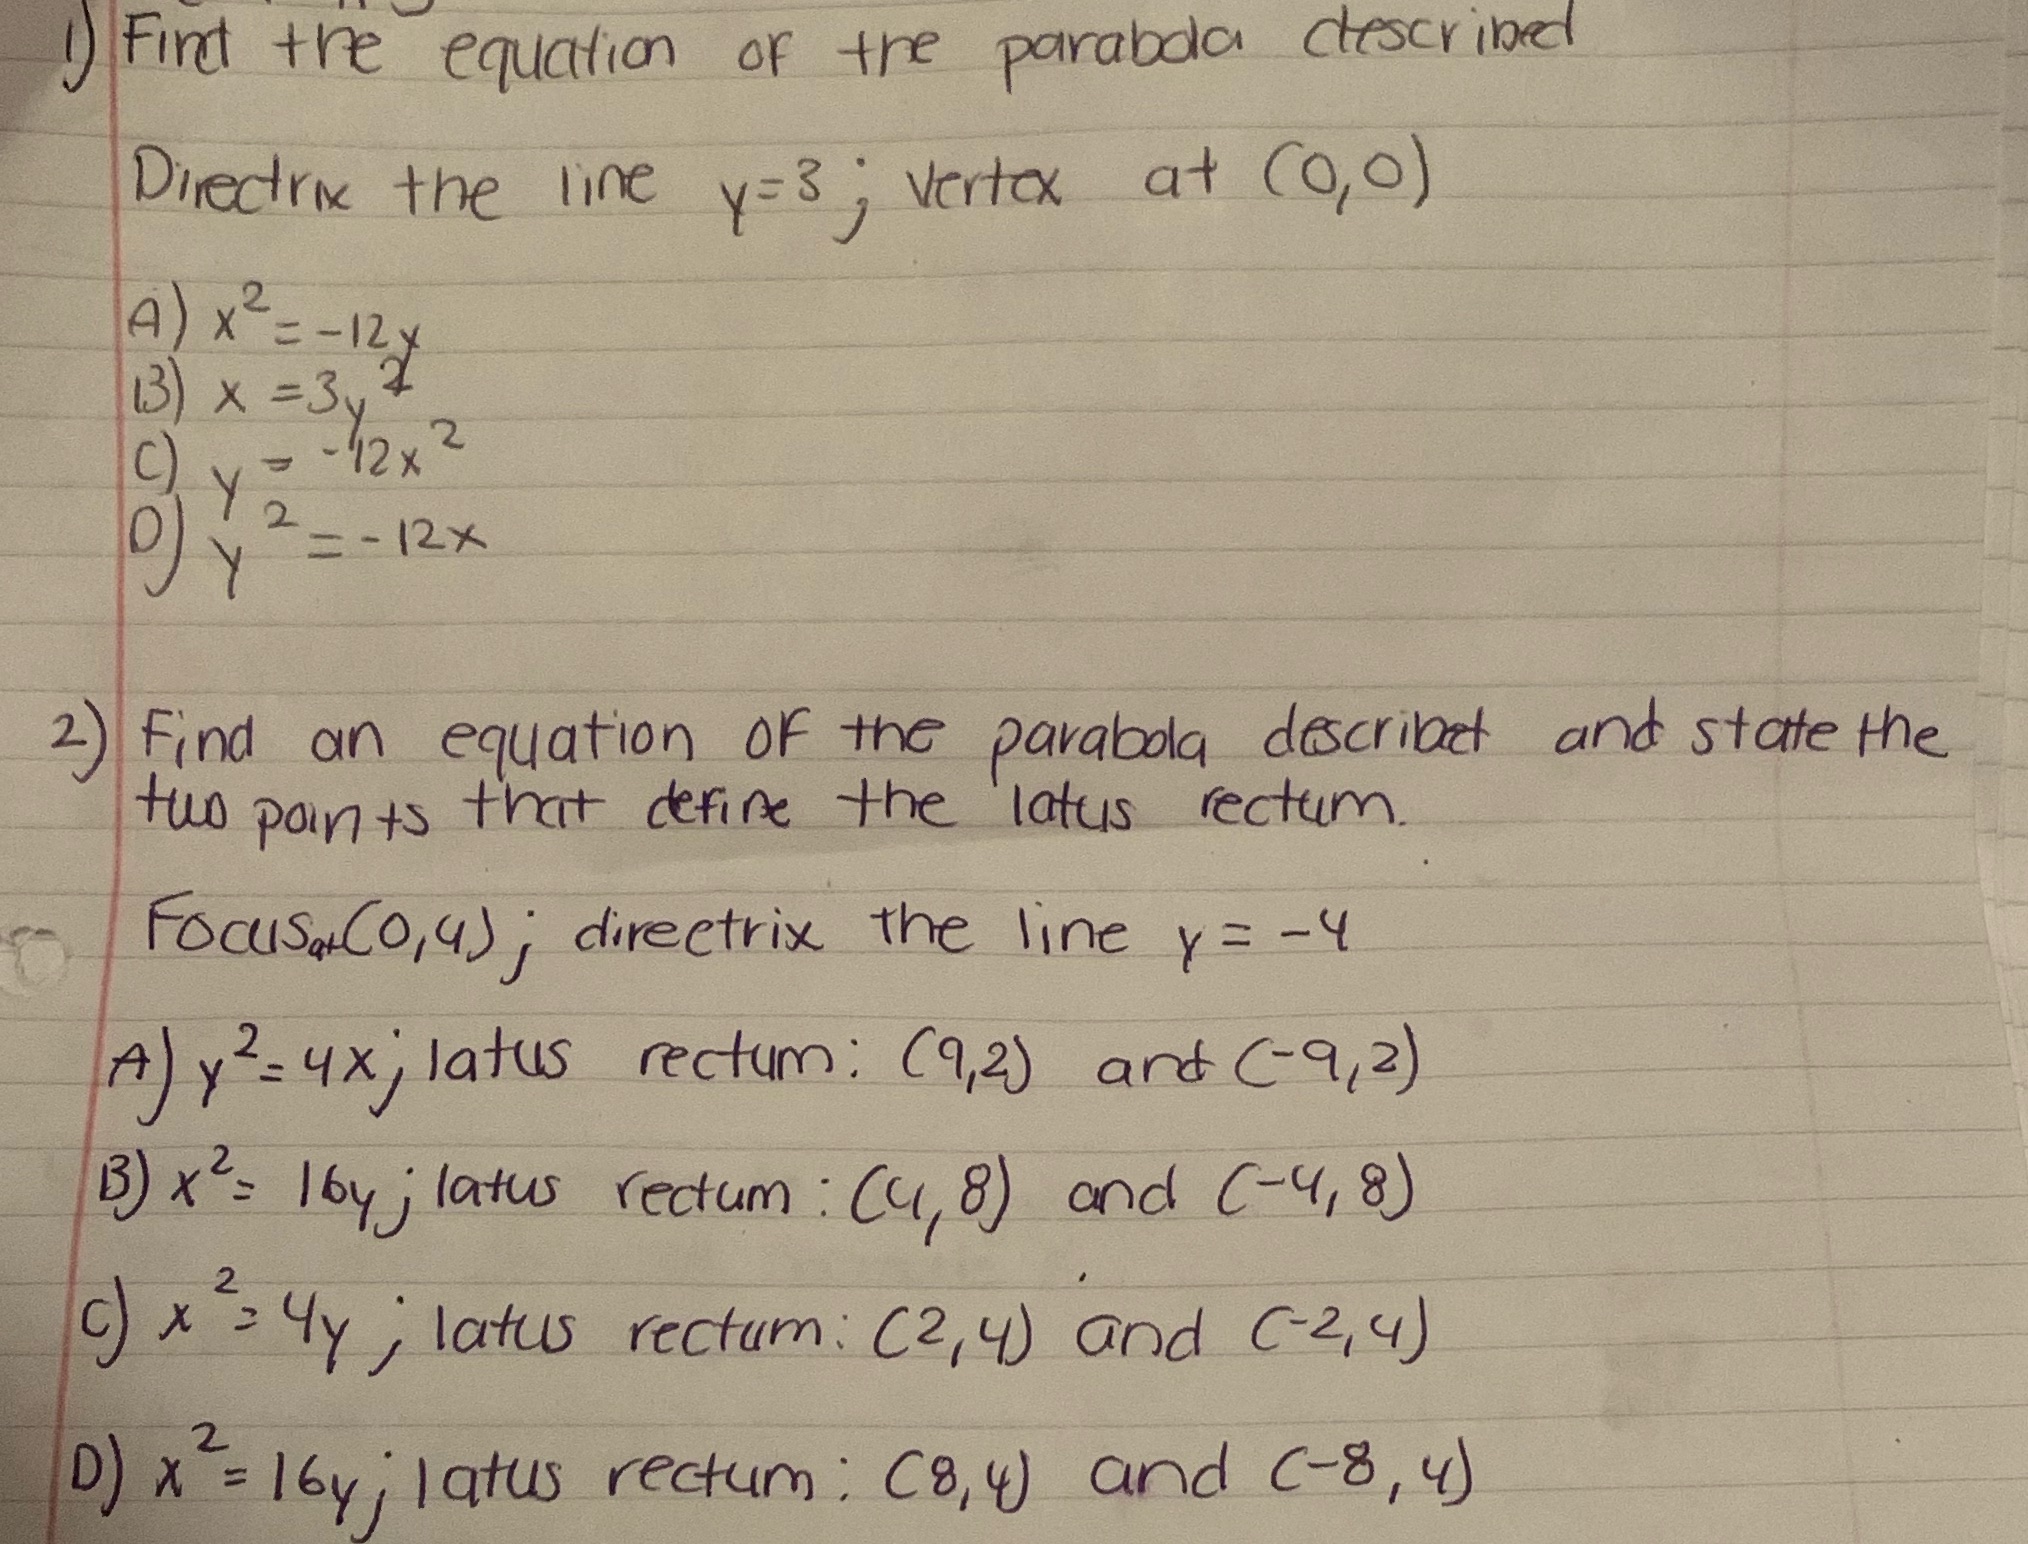 1) Find the equation of the parabola described
Directrix the line y=3; vertex at (0,0)
A) x²=-12y
B) x=3y²
C) y=-12x²
D) y²=-12x
2) Find an equation of the parabola described and state the
two points that define the latus rectum.
Focus at (0,4); directrix the line y=-4
A) y²=4x; latus rectum: (9,2) and (-9,2)
B) x²=16y; latus rectum: (4,8) and (-4,8)
C) x²=4y; latus rectum: (2,4) and (-2,4)
D) x²=16y; latus rectum: (8,4) and (-8,4)